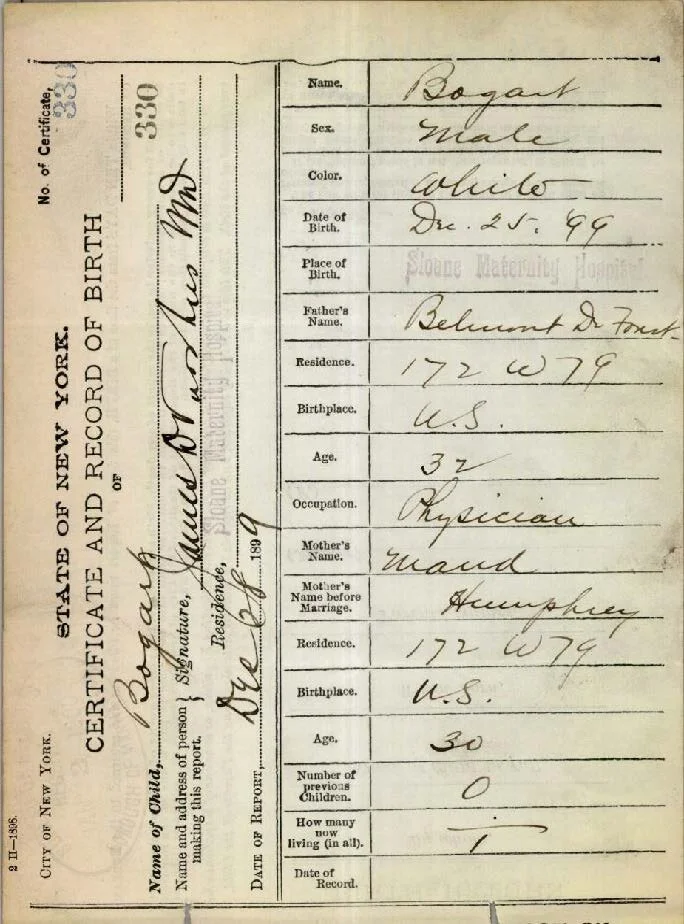 2 II—1898.
CITY OF NEW YORK.
No. of Certificate,
330
STATE OF NEW YORK.
CERTIFICATE AND RECORD OF BIRTH
OF
330
Name of Child, Bogart
Name and address of person making this report. } Signature, James D Voorhees MD
Residence, Sloane Maternity Hospital
DATE OF REPORT, Dec 28 1899
Name. Bogart
Sex. Male
Color. White
Date of Birth. Dec. 25. '99
Place of Birth. Sloane Maternity Hospital
Father's Name. Belmont De Forest
Residence. 172 W 79
Birthplace. U.S.
Age. 32
Occupation. Physician
Mother's Name. Maud
Mother's Name before Marriage. Humphrey
Residence. 172 W 79
Birthplace. U.S.
Age. 30
Number of previous Children. 0
How many now living (in all). 1
Date of Record.